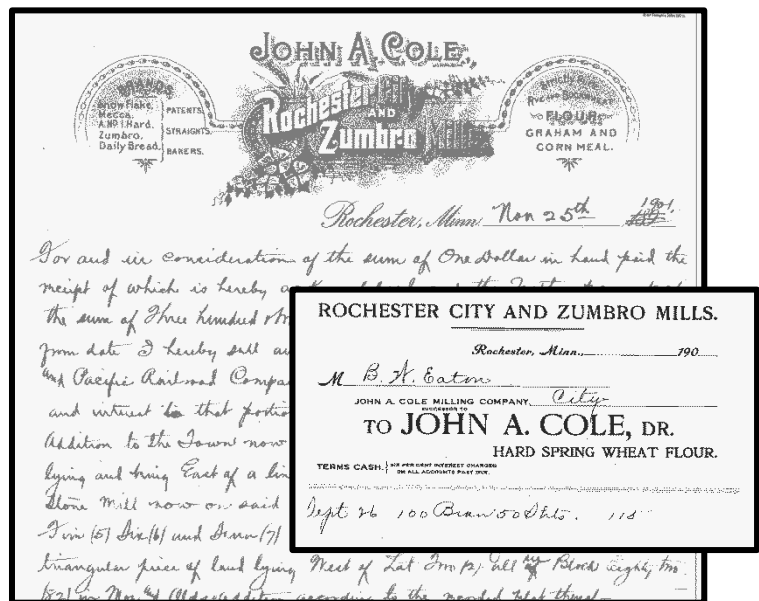 JOHN A. COLE,
Rochester City
AND
Zumbro Mills
BRANDS
Snow Flake,
Mecca,
A. No 1. Hard.
Zumbro,
Daily Bread.
PATENTS.
STRAIGHTS.
BAKERS.
RYE AND BUCKWHEAT
FLOUR
GRAHAM AND
CORN MEAL.
Rochester, Minn. Nov 25th 1901.
For and in consideration of the sum of One Dollar in hand paid the
receipt of which is hereby
the sum of Three hundred
from date I hereby sell
and Pacific Railroad Compa
and interest to that portio
Addition to the Town now
lying and being East of a lin
Stone Mill now on said
Five (5) Six (6) and Seven (7)
triangular piece of land lying West of Lot Two (2) all Block Eighty two
(82) in Addition according to the recorded plat thereof
ROCHESTER CITY AND ZUMBRO MILLS.
Rochester, Minn., 190
M B. W. Eaton
City
JOHN A. COLE MILLING COMPANY,
SUCCESSOR TO
TO JOHN A. COLE, DR.
HARD SPRING WHEAT FLOUR.
TERMS CASH. SIX PER CENT INTEREST CHARGED
ON ALL ACCOUNTS PAST DUE.
Sept 26 100 Bran 50 Shts. 115